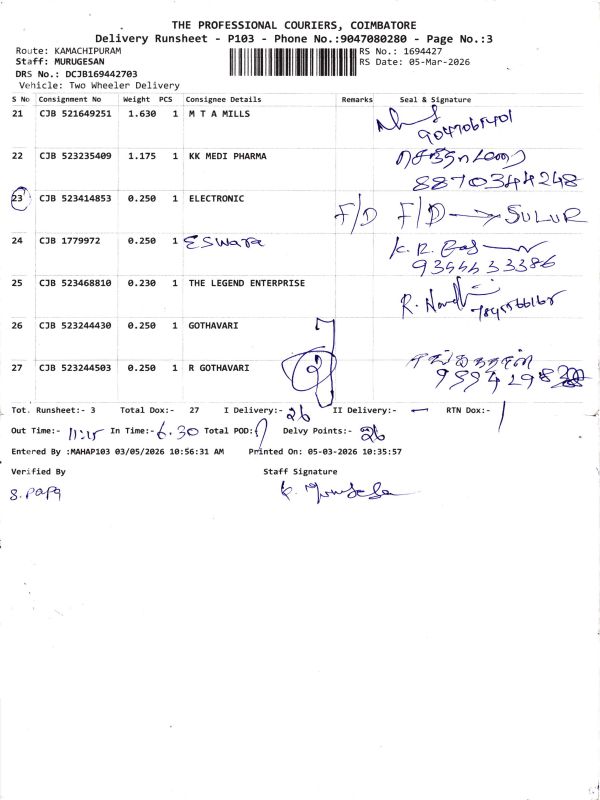 THE PROFESSIONAL COURIERS, COIMBATORE
Delivery Runsheet - P103 - Phone No.:9047080280 - Page No.:3
Route: KAMACHIPURAM
RS No.: 1694427
Staff: MURUGESAN
RS Date: 05-Mar-2026
DRS No.: DCJB169442703
Vehicle: Two Wheeler Delivery
S No Consignment No Weight PCS Consignee Details Remarks Seal & Signature
21 CJB 521649251 1.630 1 M T A MILLS
22 CJB 523235409 1.175 1 KK MEDI PHARMA
8870344248
23 CJB 523414853 0.250 1 ELECTRONIC F/D F/D → SULUR
24 CJB 1779972 0.250 1 ESWARA
25 CJB 523468810 0.230 1 THE LEGEND ENTERPRISE
26 CJB 523244430 0.250 1 GOTHAVARI
27 CJB 523244503 0.250 1 R GOTHAVARI
Tot. Runsheet:- 3 Total Dox:- 27 I Delivery:- 26 II Delivery:- — RTN Dox:- 1
Out Time:- 11:15 In Time:- 6.30 Total POD:- Delvy Points:- 26
Entered By :MAHAP103 03/05/2026 10:56:31 AM Printed On: 05-03-2026 10:35:57
Verified By Staff Signature
S. Papa